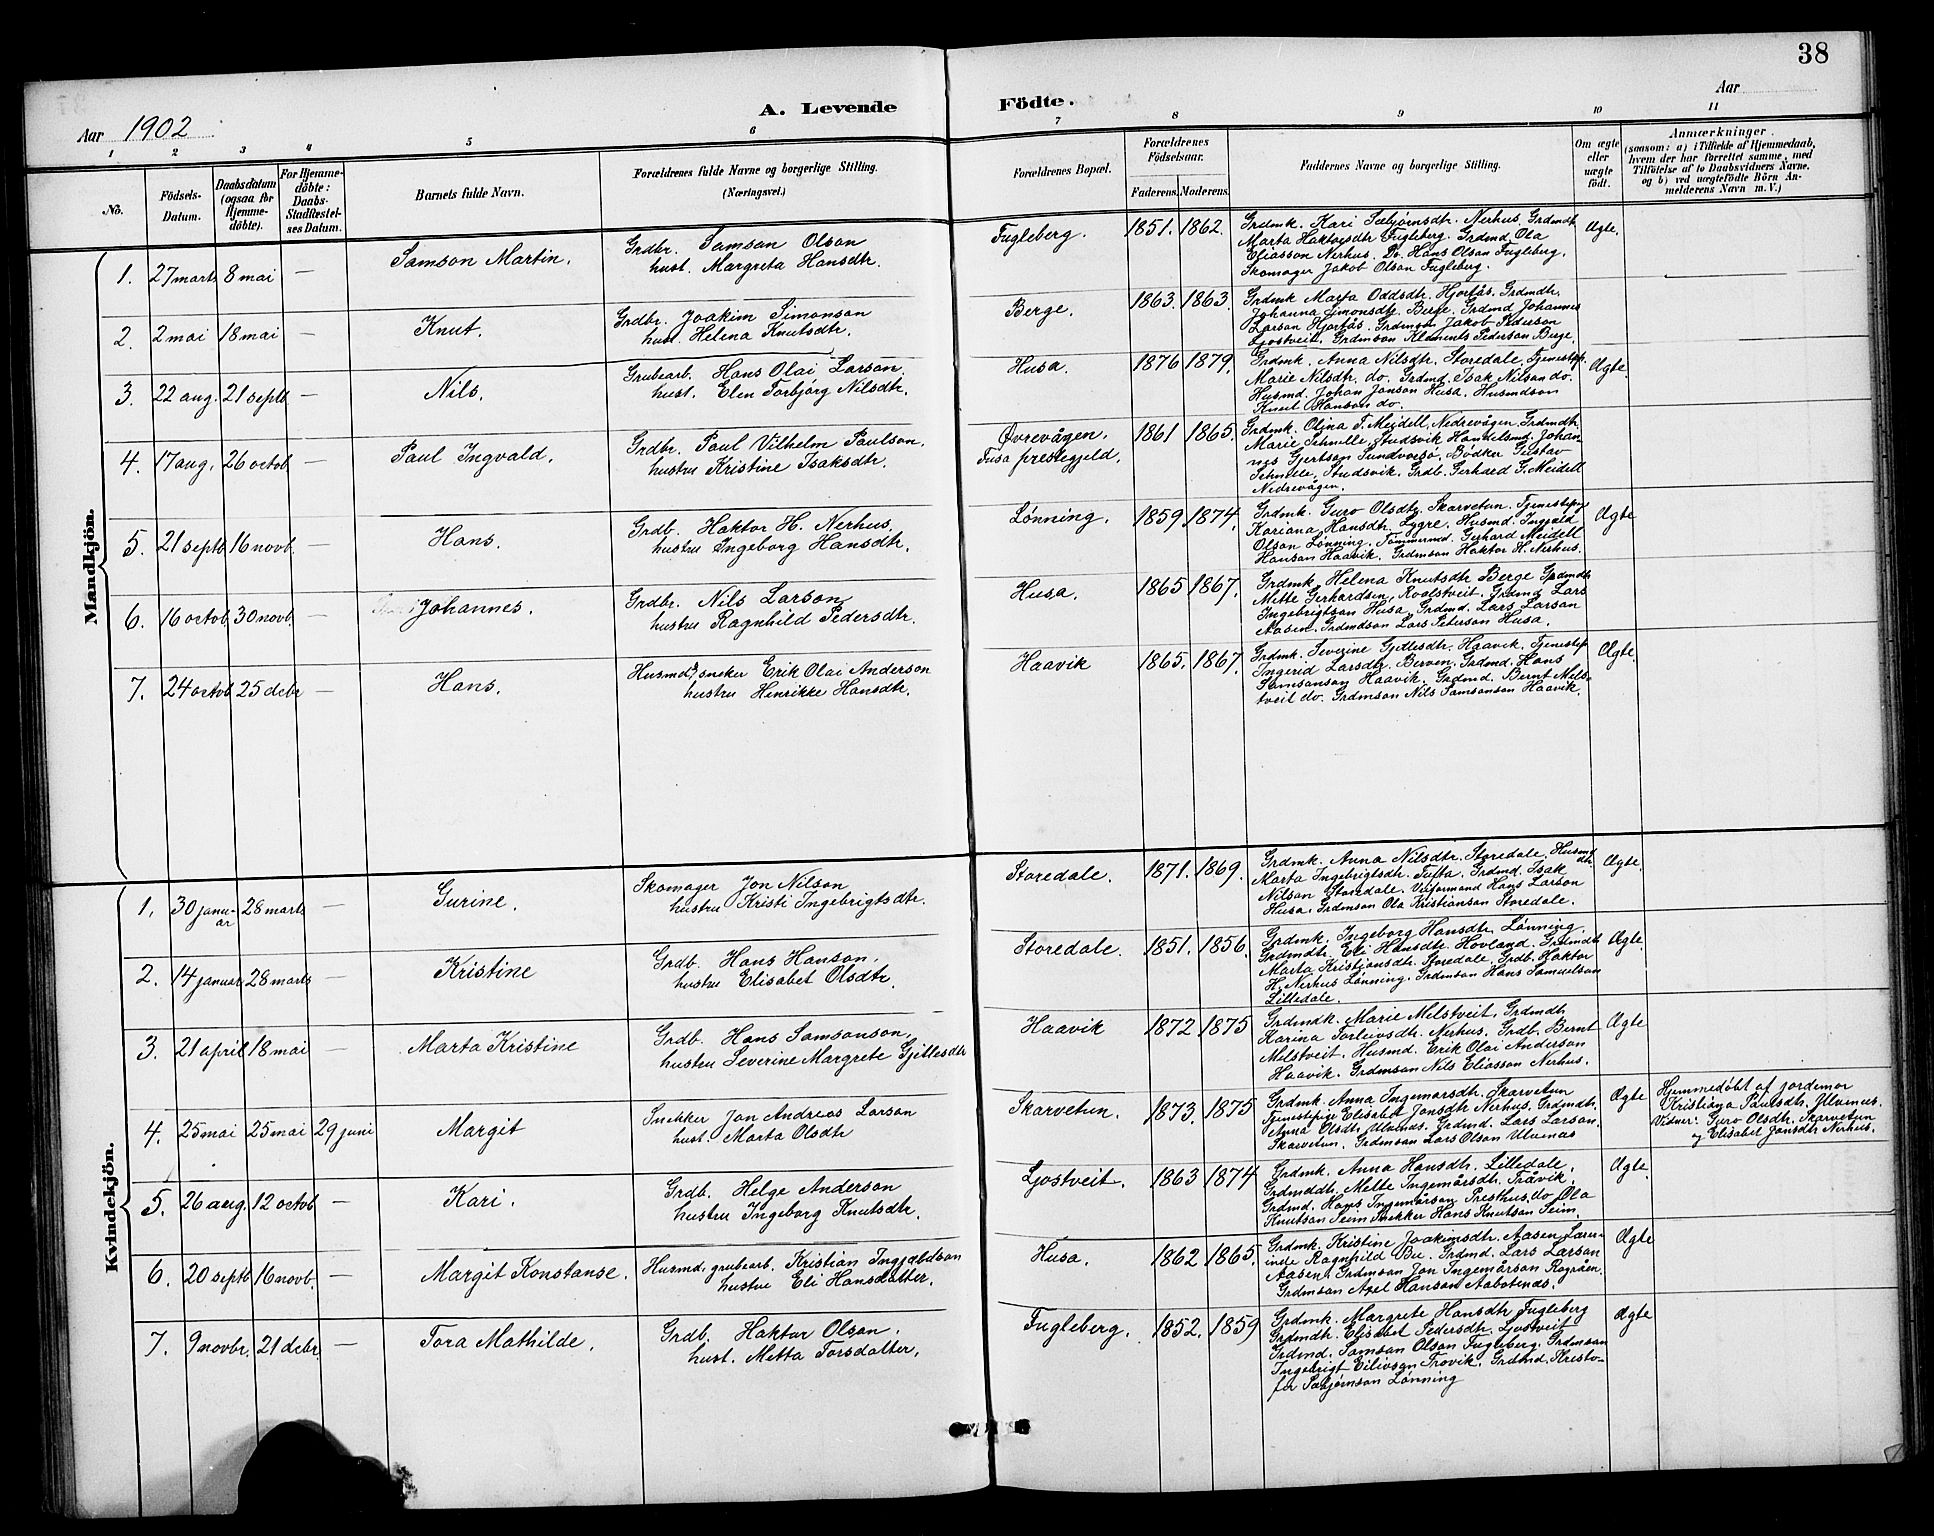 38
A. Levende Födte.
Aar 1902
Aar
1 2 3 4 5 6 7 8 9 10 11
No.
Födsels-Datum.
Daabsdatum (ogsaa for Hjemmedöbte).
For Hjemmedöbte: Daabs-Stadfæstelses Datum.
Barnets fulde Navn.
Forældrenes fulde Navne og borgerlige Stilling. (Næringsvei.)
Forældrenes Bopæl.
Forældrenes Födselsaar.
Faderens. Moderens.
Faddernes Navne og borgerlige Stilling.
Om ægte eller uægte födt.
Anmærkninger.
(saasom: a) i Tilfælde af Hjemmedaab,
hvem der har forrettet samme, med
Tilföielse af to Daabsvidners Navne,
og b) ved uægtefödte Börn An-
melderens Navn m. V.)
Mandkjön.
1. 27 marts 8 mai — Samson Martin.
Grdbr. Samson Olson
hust. Margreta Hansdtr.
Fugleberg. 1851. 1862.
Grdmk. Kari Sæbjørnsdtr. Nerhus, Grdmdt.
Marta Haktorsdtr Fugleberg. Grdmd. Ola
Eliasson Nerhus. Do. Hans Olson Fugleberg.
Skomager Jakob Olson Fugleberg.
Ægte.
2. 2 mai 18 mai — Knut.
Grdbr. Joakim Simonson
hust. Helena Knutsdtr.
Berge. 1863. 1863.
Grdmk Marta Oddsdtr. Hjortås. Grdmdtr.
Johanna Simonsdtr Berge. Grdmd Johannes
Larson Hjortås. Grdmson Jakob Pederson
Ljostveit. Grdmson Klements Pederson Berge.
3. 22 aug. 21 septb — Nils.
Grubearb. Hans Olai Larson.
hust. Elen Torbjørg Nilsdtr.
Husa. 1876 1879.
Grdmk. Anna Nilsdtr. Storedale, Tjenestepi.
Marie Nilsdtr. do. Grdmd. Isak Nilson do.
Husmd. Johan Janson Husa. Husmdson
Knut Hanson do.
Ægte.
4. 17 aug. 26 octob — Paul Ingvald.
Grdbr. Paul Vilhelm Paulson.
hustru Kristine Isaksdtr.
Øvrevågen.
Fusa prestegjeld.
1861 1865.
Grdmk. Olina F. Meidell, Nedrevågen. Grdmdtr.
Marie Schnelle, Studsvik Handelsmd. Johan-
nes Gjertson Sundvorsø, Bødker Gustav
Schnelle, Studsvik. Grdb. Gerhard G. Meidell
Nedrevågen.
5. 21 septb 16 novb. — Hans.
Grdb. Haktor H. Nerhus.
hustru Ingeborg Hansdtr.
Lønning. 1859. 1874.
Grdmk. Guro Olsdtr. Skarvetun. Tjenestepi
Kariana Hansdtr. Lygre. Husmd. Ingjald
Olson Lønning. Tømmermd. Gerhard Meidell
Hanson Haavik. Grdmson Haktor H. Nerhus.
Ægte
6. 16 octob 30 novb. — Johannes.
Grdbr. Nils Larson
hustru Ragnhild Pedersdtr.
Husa. 1865 1867.
Grdmk. Helena Knutsdtr Berge Grdmdtr
Mette Gerhardsen, Kvalstveit. Grdmd Lars
Ingebrigtson Husa. Grdmd. Lars Larson
Aasen. Grdmdson Lars Peterson Husa.
7. 24 octob 25 debr — Hans.
Husmd. sneker Erik Olai Anderson
hustru Henrikke Hansdtr.
Haavik 1865. 1867.
Grdmk. Severine Gjellesdtr. Haavik. Tjenestepi
Ingerid Larsdtr. Berven. Grdmd. Hans
Samsonson Haavik. Grdmd. Bernt Mels-
tveit do. Grdmson Nils Samsonson Haavik.
Ægte.
Kvindekjön.
1. 30 janu-
ar 28 marts — Gurine.
Skomager Jon Nilson
hustru Kristi Ingebrigtsdtr.
Storedale. 1871. 1869.
Grdmk. Anna Nilsdtr. Storedale. Husmd
dtr
Marta Ingebrigtsdtr. Tufta. Grdmd. Isak
Nilson Storedale. Viseformand Hans Larson
Husa. Grdmson Ola Kristianson Storedale.
Ægte.
2. 14 januar 28 marts — Kristine
Grdb. Hans Hanson.
hustru Elisabet Olsdtr.
Storedale. 1851. 1856.
Grdmk. Ingeborg Hansdtr. Lønning.
Grdmdtr. Eli Hansdtr. Hovland. Grdmdt
Marta Kristjansdtr. Storedale. Grdb. Haktor
H. Nerhus Lønning. Grdmson Hans Samuelson
Lilledale.
Ægte.
3. 21 april 18 mai — Marta Kristine
Grdb. Hans Samsonson.
hustru Severine Margrete Gjellesdtr
Haavik 1872. 1875
Grdmdk. Marie Melstveit, Grdmdtr
Karina Torleivsdtr. Nerhus. Grdb. Bernt
Melstveit. Husmd. Erik Olai Anderson
Haavik. Grdmson Nils Eliasson Nerhus.
Ægte
4. 25 mai 25 mai 29 juni Margit
Snekker Jon Andreas Larson
hust. Marta Olsdtr
Skarvetun. 1873. 1875
Grdmk. Anna Ingemarsdtr. Skarvetun
Tjenestepige Elisabet Jonsdtr Nerhus. Grdmdtr.
Anna Olsdtr Ulvenes. Grdmd. Lars Larson.
Skarvetun. Grdmson Lars Olson Ulvenas
Ægte
Hjemmedøbt af jordemor
Kristina Paulsdtr. Ulvenes.
Vidner: Guro Olsdtr. Skarvetun
og Elisabet Jonsdtr Nerhus.
5. 26 aug. 12 octob — Kari.
Grdb. Helge Anderson
hustru Ingeborg Knutsdtr.
Ljostveit. 1863 1874
Grdmk. Anna Hansdtr. Lilledale.
Grdmddtr. Mette Ingemårsdtr. Tråvik.
Grdmd. Hans Ingemårson Presthus, do Ola
Knutson Seim Snekker Hans Knutson Seim.
Ægte.
6. 20 septb 16 novb. — Margit Konstanse.
Husmd. grubearb. Kristian Ingjaldson
hustru Eli Hansdatter.
Husa. 1862 1865.
Grdmk. Kristine Joakimsdtr. Aasen Lærer-
inde Ragnhild Bu. Grdmd. Lars Larson
Aasen. Grdmson Jon Ingemårson Rogråen.
Grdmson Axel Hanson Aabotenes.
Ægte
7. 9 novbr. 21 debr. — Tora Mathilde.
Grdb. Haktor Olson.
hust. Metta Torsdatter.
Fugleberg. 1852. 1859
Grdmk. Margrete Hansdtr Fugleberg
Grdmdtr. Elisabet Pedersdtr. Ljostveit
Grdmd. Samson Olson Fugleberg. Grdmson
Ingebrigt Eilivson Trovik. Grdmd. Kresto-
fer Sæbjørnson Lønning
Ægte